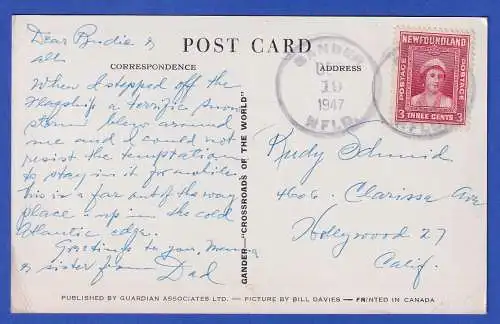 Dear Budie &
all:
When I stepped off the
Flagship a terrific snow
storm blew around
me and I could not
resist the temptation
to stay in it for while
this is a far out of the way
place - up in the cold
Atlantic edge.
Greetings to you, Mama
& sister from Dad
POST CARD
CORRESPONDENCE
ADDRESS
GANDER—"CROSSROADS OF THE WORLD"
GANDER
19
1947
NFLD.
NEWFOUNDLAND
POSTAGE
POSTAGE
3 THREE CENTS 3
Rudy Schmid
4606 Clarissa Ave
Hollywood 27
Calif.
PUBLISHED BY GUARDIAN ASSOCIATES LTD. — PICTURE BY BILL DAVIES — PRINTED IN CANADA